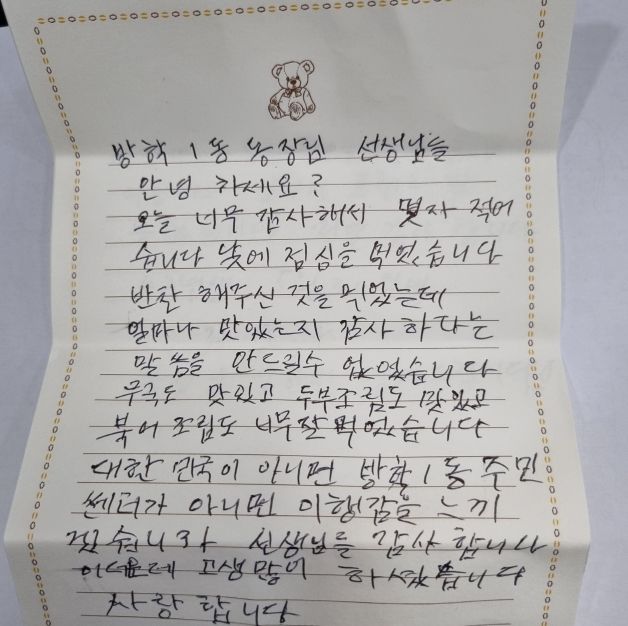 방학 1동 동장님 선생님들
안녕 하세요?
오늘 너무 감사해서 몇자 적어
습니다 낮에 점심을 먹었습니다
반찬 해주신 것을 먹었는데
얼마나 맛있는지 감사 하다는
말씀을 안드릴수 없었습니다
무국도 맛있고 두부조림도 맛있고
북어 조림도 너무 잘 먹었습니다
대한 민국이 아니면 방학 1동 주민
쎈터가 아니면 이행감을 느끼
겠습니까 선생님들 감사 합니다
고생많이 하셨습니다
사랑 합니다